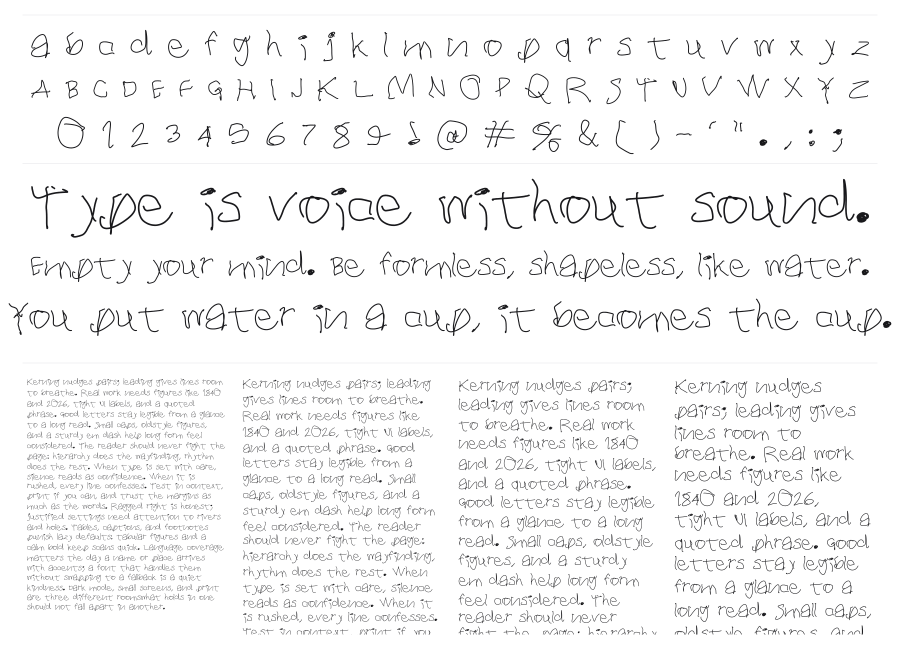 a b c d e f g h i j k l m n o p q r s t u v w x y z
A B C D E F G H I J K L M N O P Q R S T U V W X Y Z
0 1 2 3 4 5 6 7 8 9 ! @ # % & ( ) - ' " . , : ;
Type is voice without sound.
Empty your mind. Be formless, shapeless, like water.
You put water in a cup, it becomes the cup.
Kerning nudges pairs; leading gives lines room
to breathe. Real work needs figures like 1840
and 2026, tight UI labels, and a quoted
phrase. Good letters stay legible from a glance
to a long read. Small caps, oldstyle figures,
and a sturdy em dash help long form feel
considered. The reader should never fight the
page: hierarchy does the wayfinding, rhythm
does the rest. When type is set with care,
silence reads as confidence. When it is
rushed, every line confesses. Test in context,
print if you can and trust the margins as
much as the words. Ragged right is honest;
justified settings need attention to rivers
and holes. Tables, captions, and footnotes
punish lazy defaults: tabular figures and a
calm bold keep scans quick. Language coverage
matters the day a name or place arrives
with accents; a font that handles them
without swapping to a fallback is a quiet
kindness. Dark mode, small screens, and print
are three different rooms: what holds in one
should not fall apart in another.
Kerning nudges pairs; leading
gives lines room to breathe.
Real work needs figures like
1840 and 2026, tight UI labels,
and a quoted phrase. Good
letters stay legible from a
glance to a long read. Small
caps, oldstyle figures, and a
sturdy em dash help long form
feel considered. The reader
should never fight the page:
hierarchy does the wayfinding,
rhythm does the rest. When
type is set with care, silence
reads as confidence. When it
is rushed, every line confesses.
Test in context, print if you
Kerning nudges pairs;
leading gives lines room
to breathe. Real work
needs figures like 1840
and 2026, tight UI labels,
and a quoted phrase.
Good letters stay legible
from a glance to a long
read. Small caps, oldstyle
figures, and a sturdy
em dash help long form
feel considered. The
reader should never
fight the page: hierarchy
Kerning nudges
pairs; leading gives
lines room to
breathe. Real work
needs figures like
1840 and 2026,
tight UI labels, and a
quoted phrase. Good
letters stay legible
from a glance to a
long read. Small caps,
oldstyle figures, and